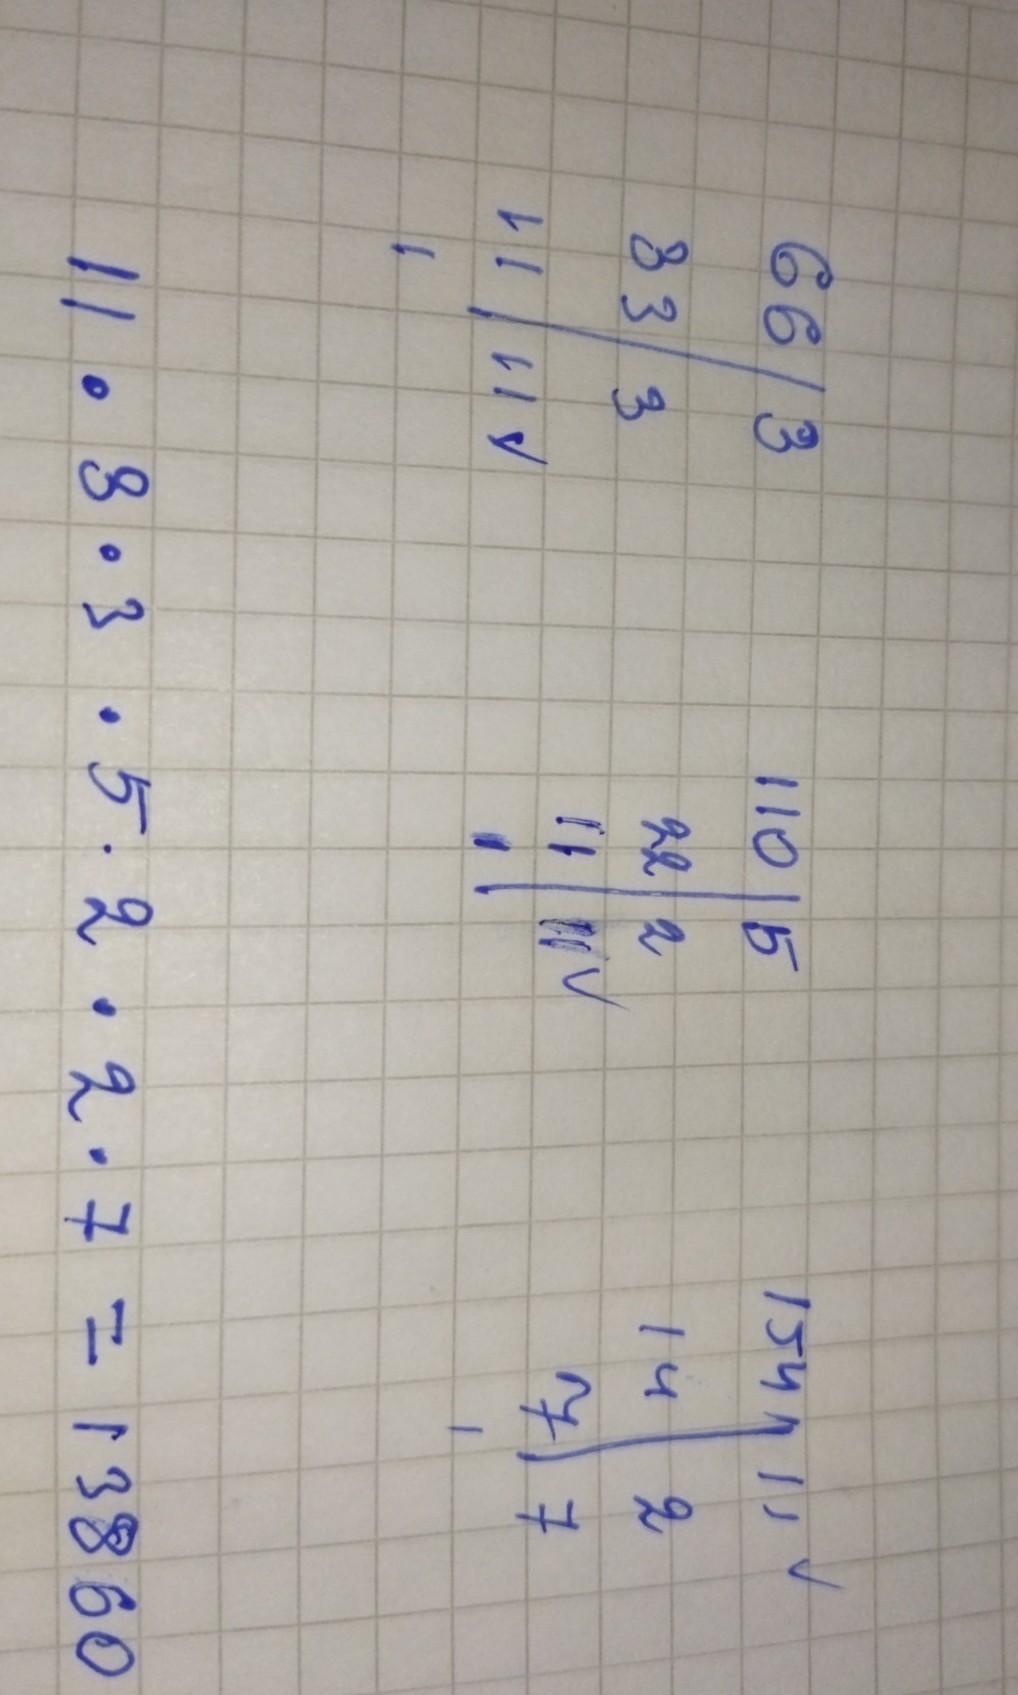 66 | 3 110 | 5 154 | 11 v
33 | 3 22 | 2 14 | 2
11 | 11 v 11 | 11 v 7 | 7
1 1 1
11 · 3 · 3 · 5 · 2 · 2 · 7 = 13860